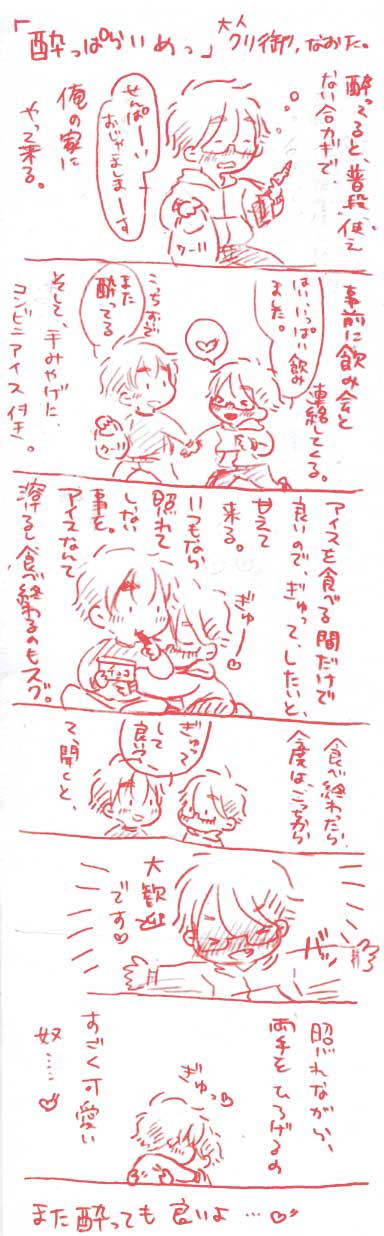 「酔っぱらいめっ」
大人クリ御、なおた。
酔ってると、普段、使え
ない合カギで
俺の家に
やって来る。
せんぱーい
おじゃましまーす
事前に飲み会と
連絡してくる。
はい、いっぱい飲み
ました。
また
酔ってる
そして、手みやげに、
コンビニアイス付き。
アイスを食べる間だけで
良いので、ぎゅって、したいと、
甘えて
来る。
いつもなら
照れて
しない
事を。
アイスなんて
溶けるし食べ終わるのもスグ。
ぎゅー
チョコ
食べ終わったら
今度は、こっちから
ぎゅって
して
良い?
て、聞くと、
バッ
大歓迎
です
照れながら、
両手をひろげるの
ぎゅっ
すごく可愛い
奴……
また酔っても良いよ…